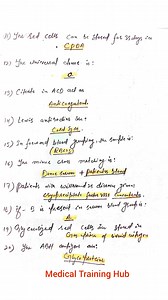 11) The red cells can be stored for 35 days in
CPDA
12) The universal donor is:
O
13) Citrate in ACD act as
Anticoagulant
14) Lewis antibodies are:
Cold type
15) In forward blood grouping, the sample is:
16) The minor cross matching is:
Donor serum + patients blood
17) Patients with willebrand disease given
Cryoprecipitate factor VIII
18) if B is present in serum blood group is:
A
19) Glycerolized red cells are stored in
20) The ABH antigens are:
Glycoproteins
Medical Training Hub